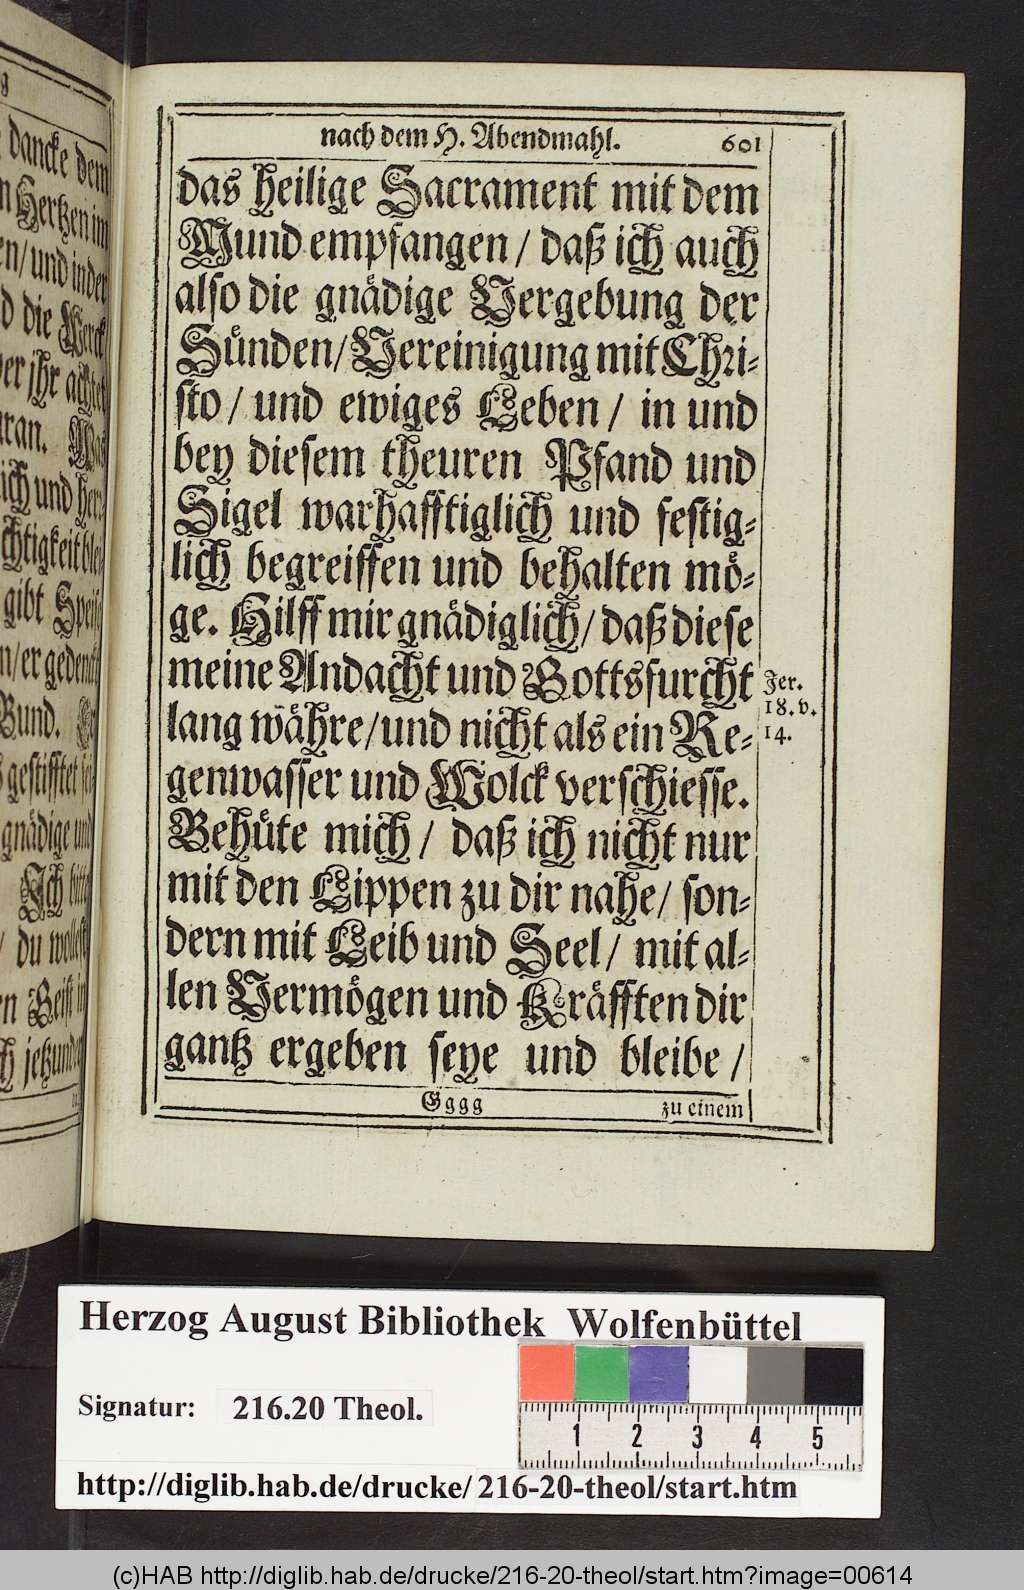 nach dem H. Abendmahl. 601
das heilige Sacrament mit dem
Mund empfangen / daß ich auch
also die gnädige Vergebung der
Sünden / Vereinigung mit Chri-
sto / und ewiges Leben / in und
bey diesem theuren Pfand und
Sigel warhafftiglich und festig-
lich begreiffen und behalten mö-
ge. Hilff mir gnädiglich / daß diese
meine Andacht und Gottsfurcht
lang währe / und nicht als ein Re-
genwasser und Wolck verschiesse.
Behüte mich / daß ich nicht nur
mit den Lippen zu dir nahe / son-
dern mit Leib und Seel / mit al-
len Vermögen und Kräfften dir
gantz ergeben seye und bleibe /
Gggg zu einem
Jer.
18. v.
14.
dancke dem
Hertzen im
/ und in der
die Werck
jhr achtet
Was
ich und
gibt Speise
/ er gedenckt
Bund. Er
gestifftet
gnädige und
Ich bitte
/ du wollest
Geist in
jetzund
Herzog August Bibliothek Wolfenbüttel
Signatur: 216.20 Theol.
1 2 3 4 5
http://diglib.hab.de/drucke/ 216-20-theol/start.htm
(c)HAB http://diglib.hab.de/drucke/216-20-theol/start.htm?image=00614